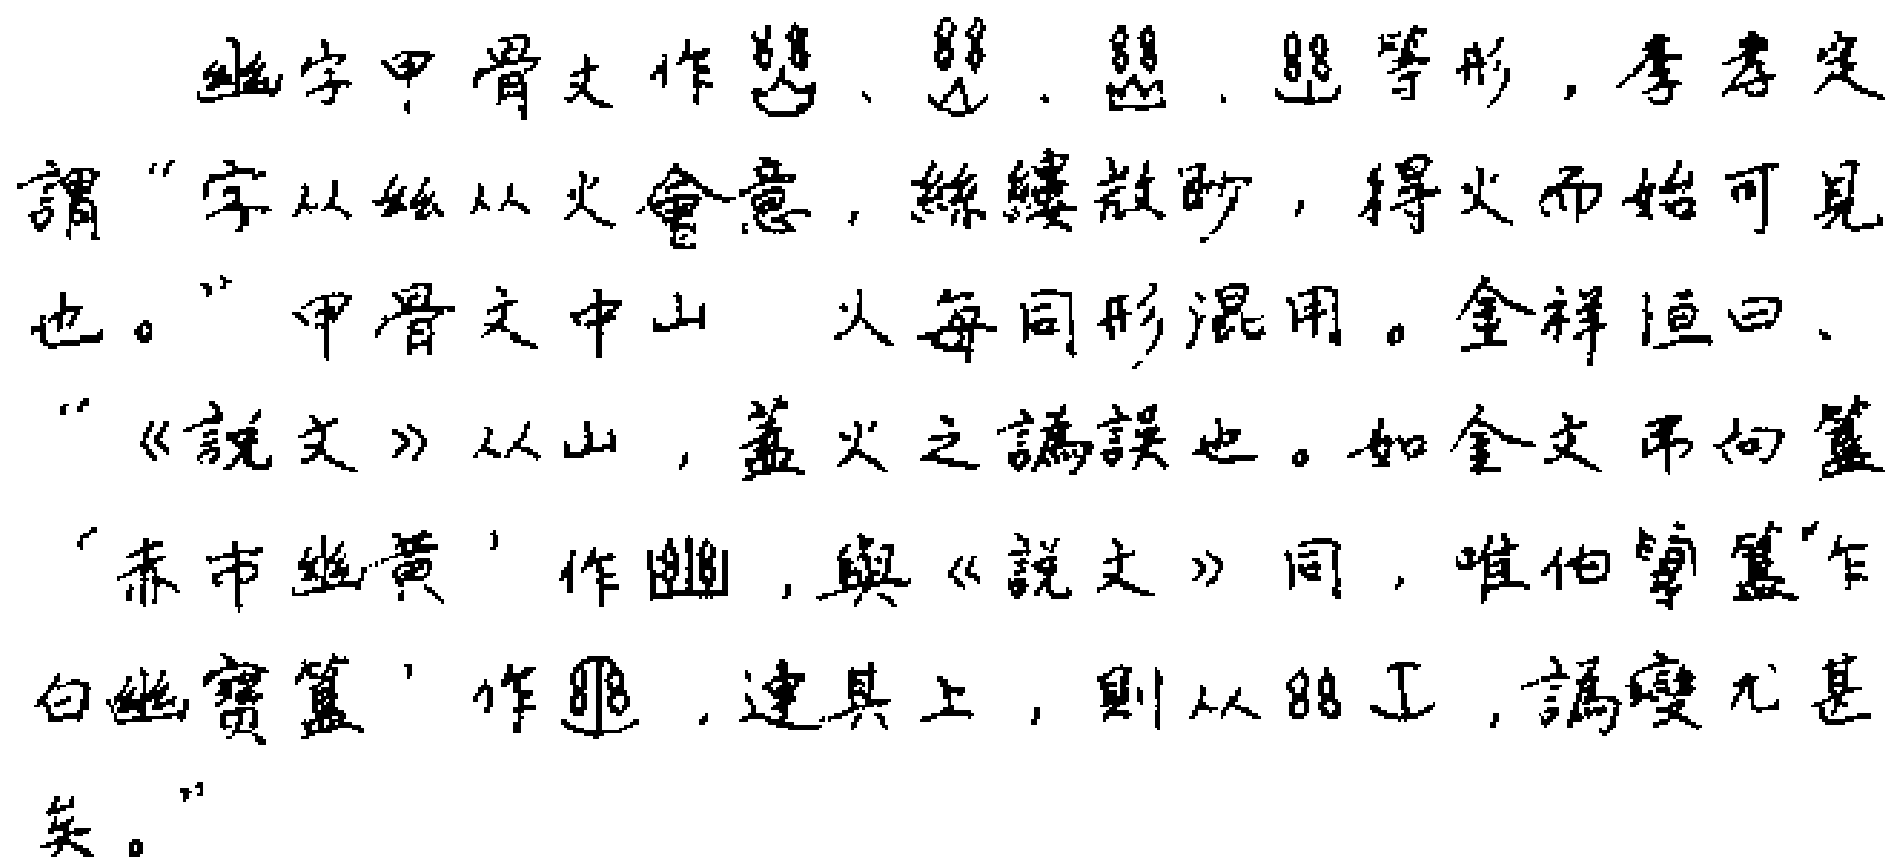 幽字甲骨文作、、、等形，李孝定
謂“字从絲从火會意，絲縷散眇，得火而始可見
也。”甲骨文中山 火每同形混用。金祥恒曰、
“《説文》从山，蓋火之譌誤也。如金文弔向簋
‘赤巿幽黃’作，與《説文》同，唯伯簋‘乍
白幽寶簋’作，連其上，則从，譌變尤甚
矣。”